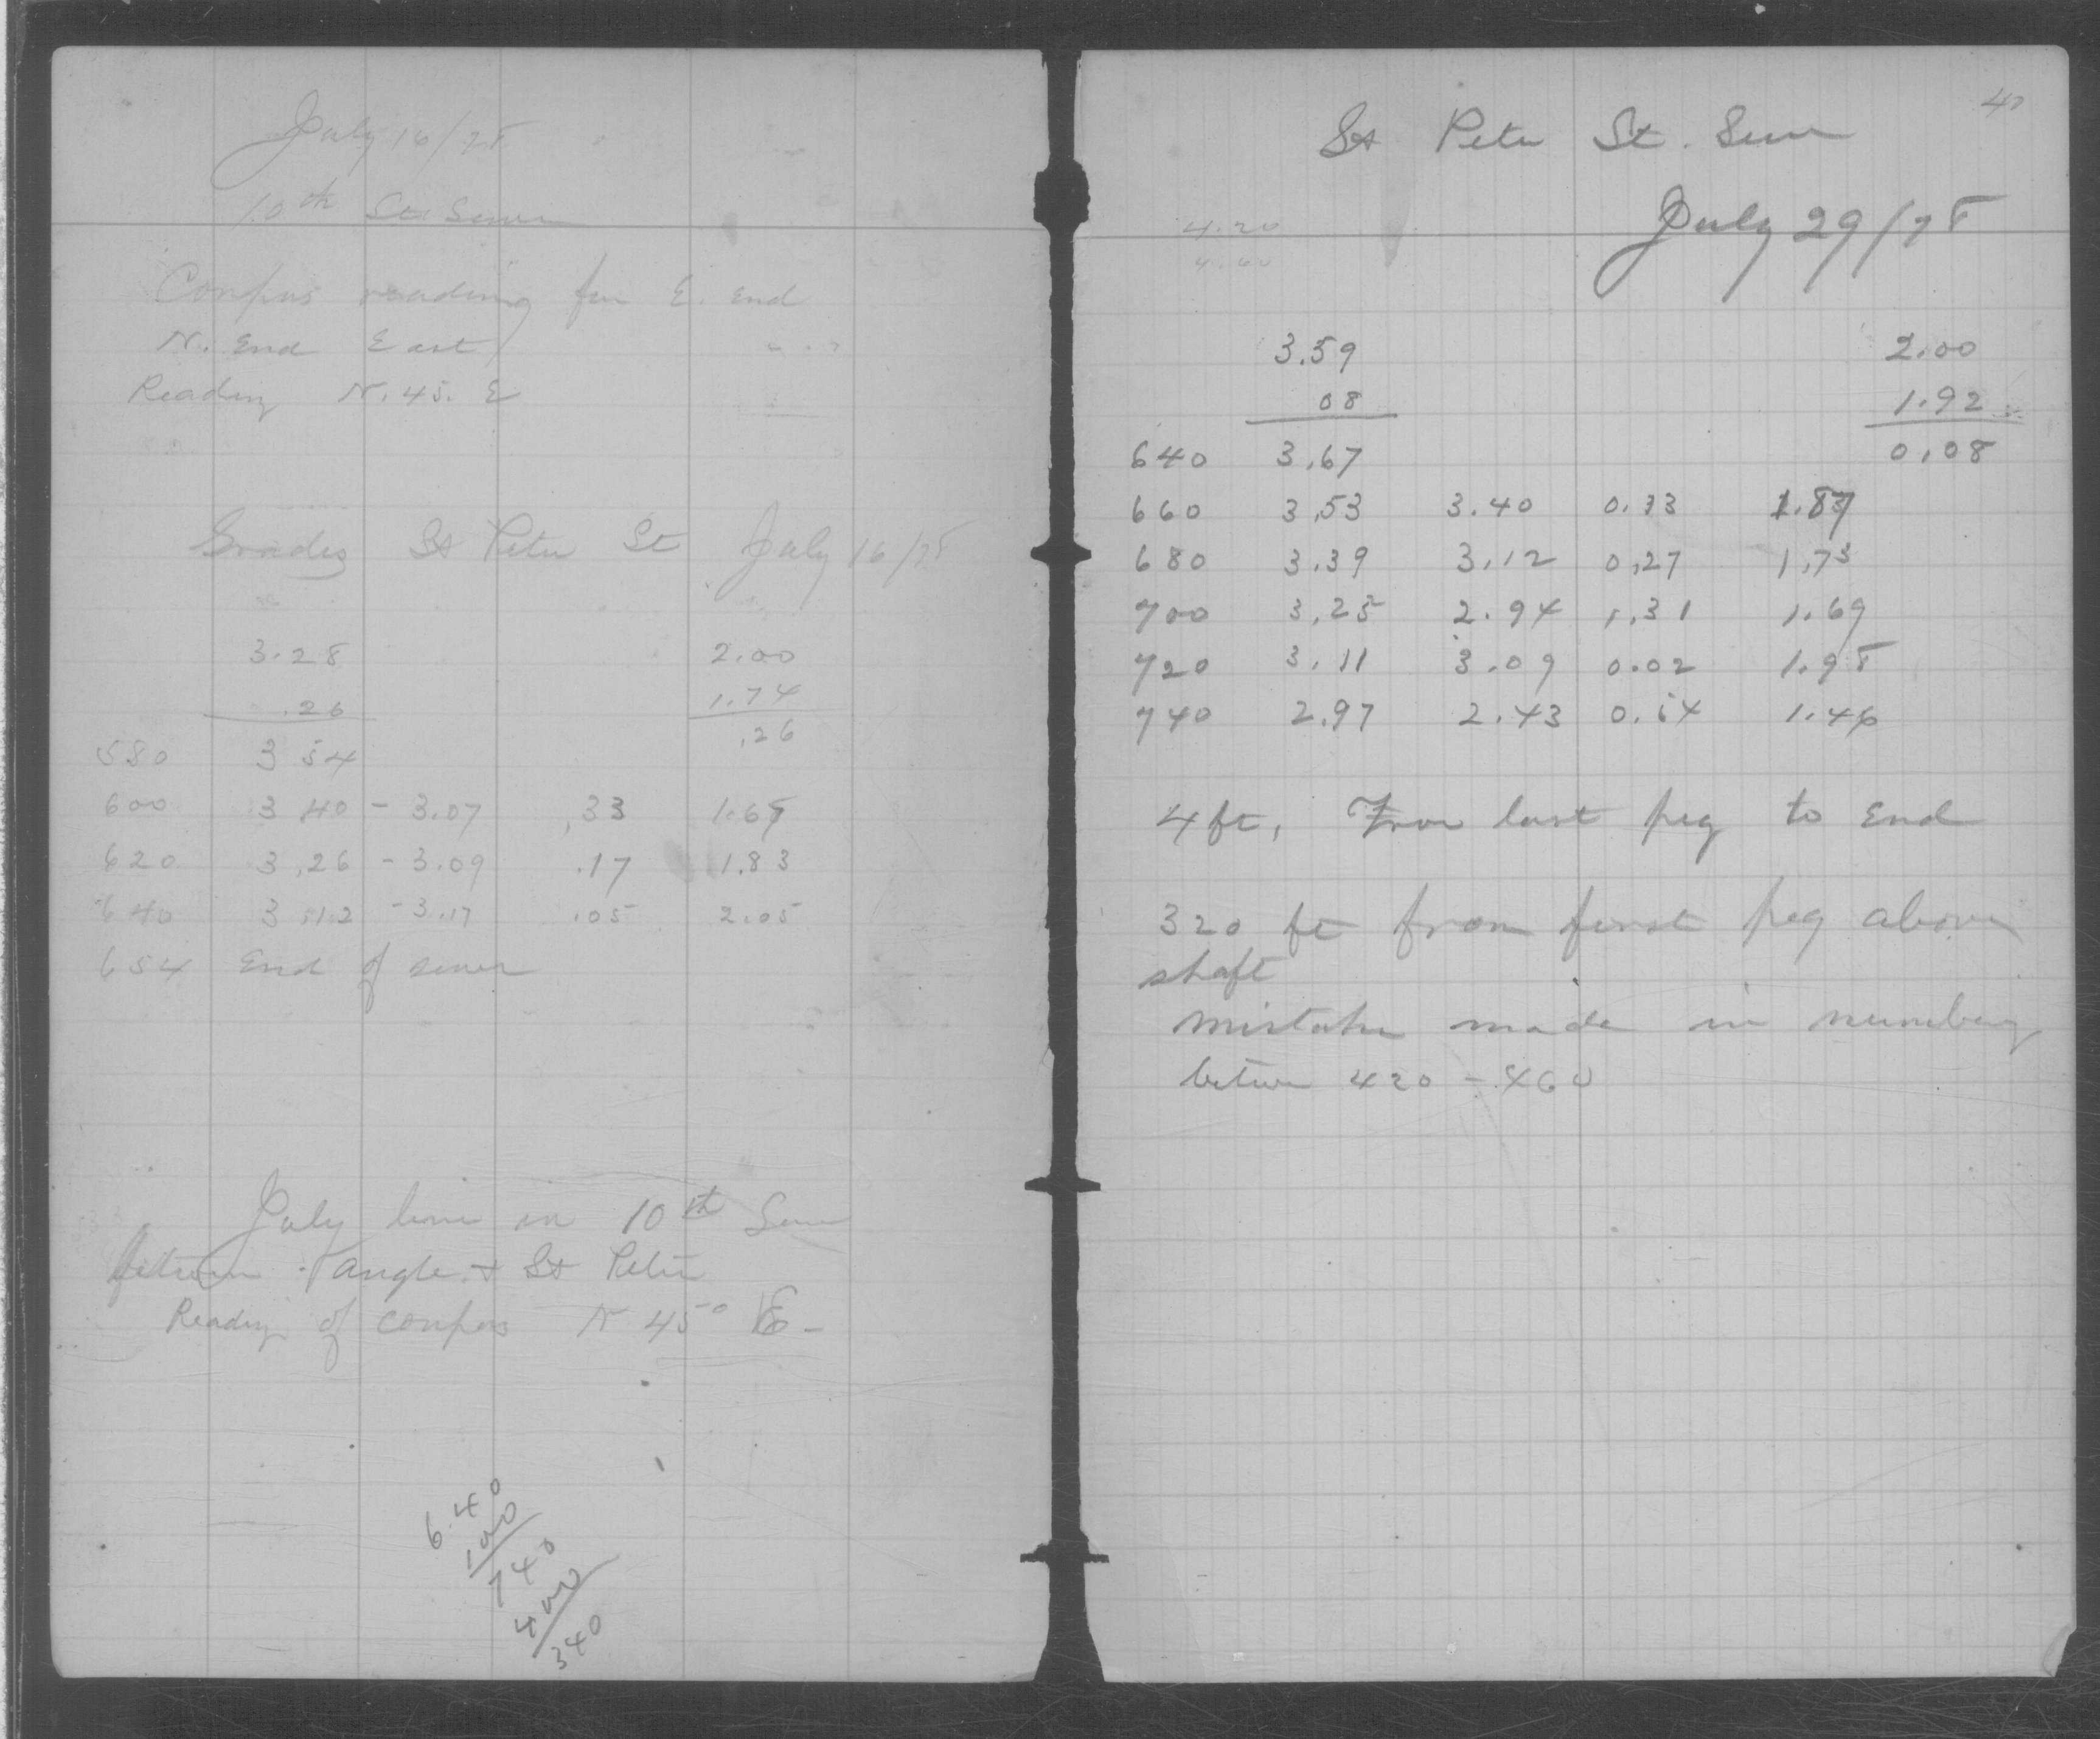 July 16/78
10th St. Sewer
Compas reading for E. end
N. End East
Reading N. 45. E
Grades St Peter St July 16/78
3.28 2.00
.26 1.74
580 3 54 .26
600 3 40 - 3.07 .33 1.67
620 3.26 - 3.09 .17 1.83
640 3 12 - 3.17 .05 2.05
654 End of sewer
July line in 10th Sewer
between angle + St Peter
Reading of compas N 45° E -
6.40
100
740
400
340
40
St Peter St. Sewer
July 29/78
4.20
4.60
3.59 2.00
08 1.92
640 3.67 0.08
660 3.53 3.40 0.13 1.87
680 3.39 3.12 0.27 1.73
700 3.25 2.94 1.31 1.69
720 3.11 3.09 0.02 1.98
740 2.97 2.43 0.54 1.46
4 ft. From last peg to End
320 ft from first peg above
shaft
mistake made in numbering
between 420 - 460